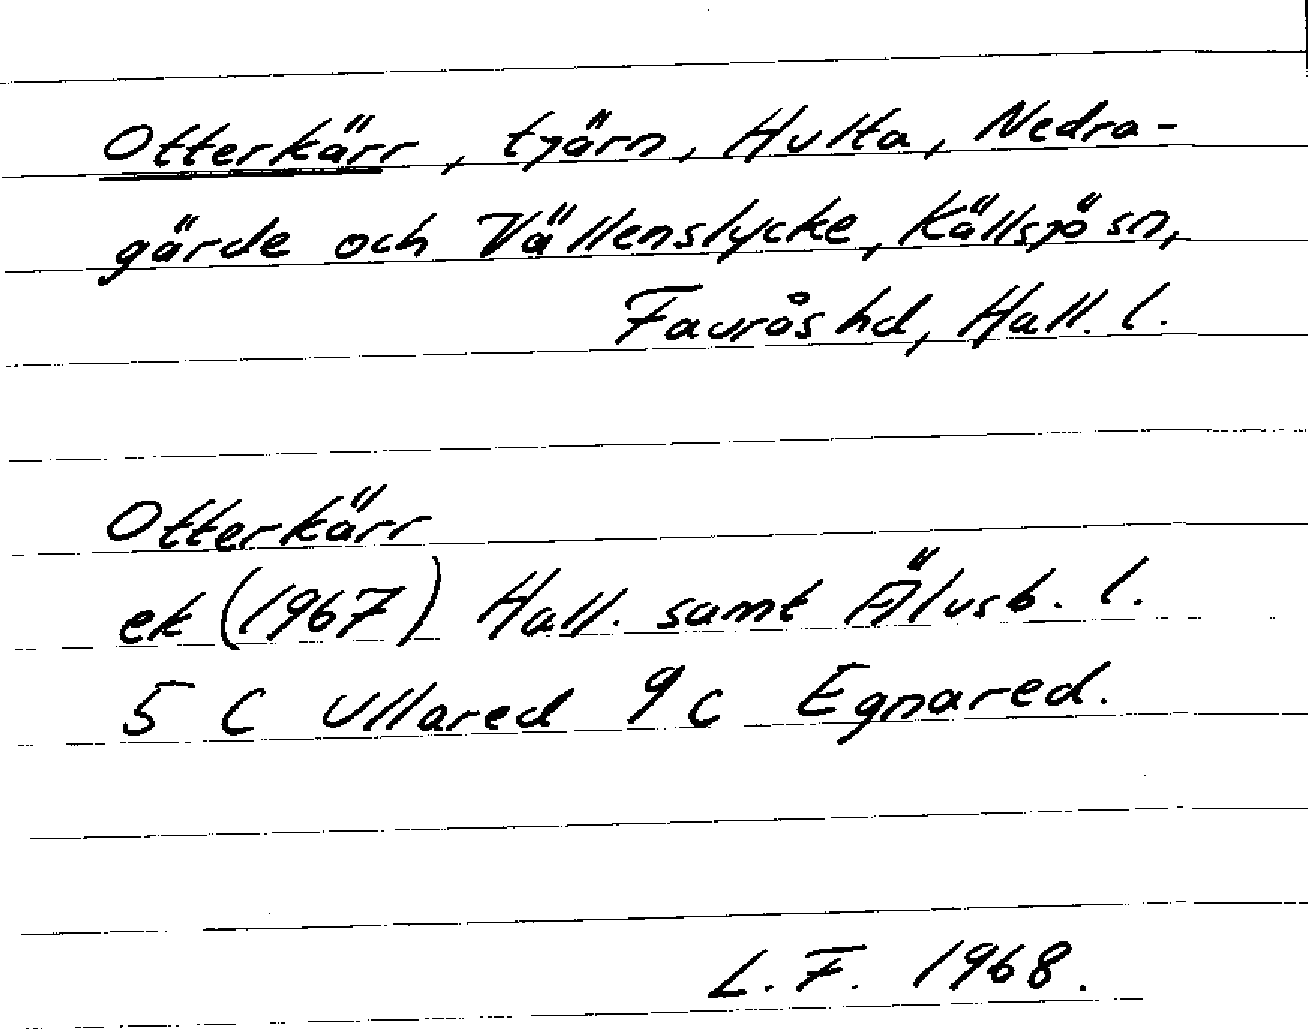 Otterkärr, tjärn, Hulta, Nedra-
gärde och Vällenslycke, Källsjösn,
Fauråshd, Hall. l.
Otterkärr
ek (1967) Hall. samt Älvsb. l.
5 C Ullared 9 c Egnared.
L. F. 1968.